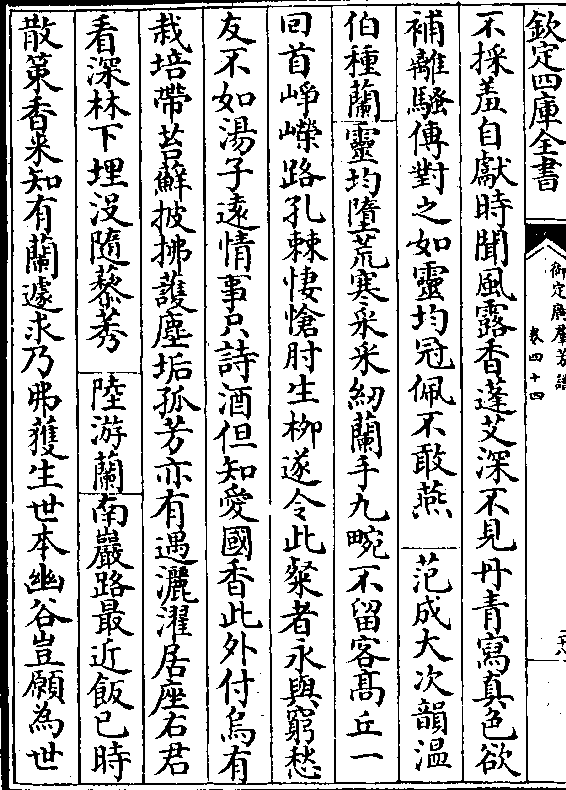 欽定四庫全書
御定廣羣芳譜
卷四十四
不採羞自獻時聞風露香蓬艾深不見丹青寫真色欲
補離騷傳對之如靈均冠佩不敢燕 范成大次韻溫
伯種蘭靈均墮荒寒采采紉蘭手九畹不留客高丘一
回首崢嶸路孔棘悽愴肘生柳遂令此粲者永與窮愁
友不如湯子遠情事只詩酒但知愛國香此外付烏有
栽培帶苔蘚披拂護塵垢孤芳亦有遇灑濯居座右君
看深林下埋没隨藜莠 陸游蘭南巖路最近飯已時
散策香來知有蘭遽求乃弗獲生世本幽谷豈願為世